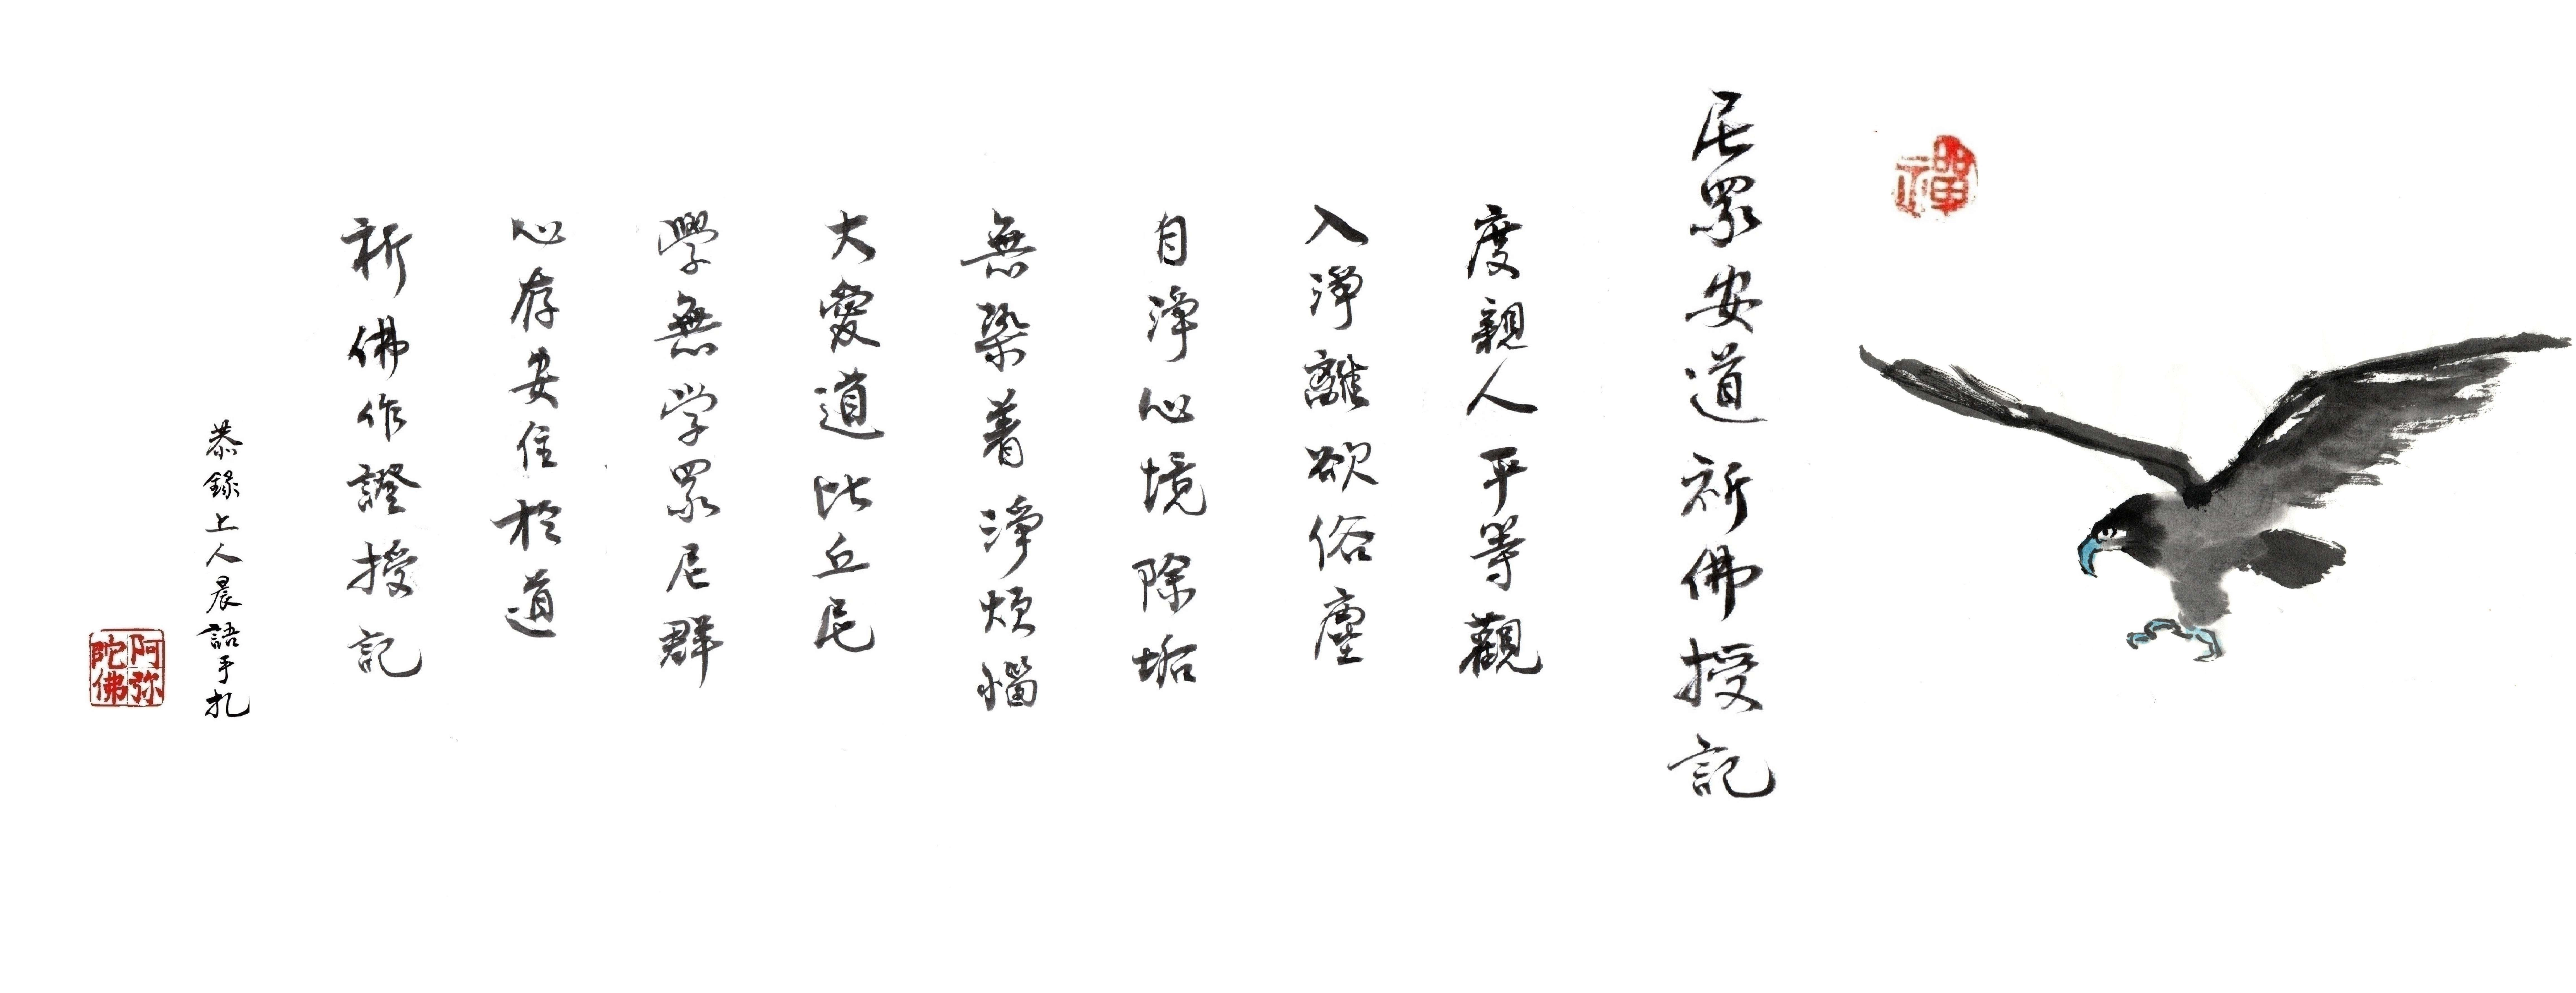 禪
尼眾安道祈佛授記
度親人平等觀
入淨離欲俗塵
自淨心境除垢
無染着淨煩惱
大愛道比丘尼
學無學眾尼群
心存安住於道
祈佛作證授記
恭錄上人晨語手扎
阿弥陀佛